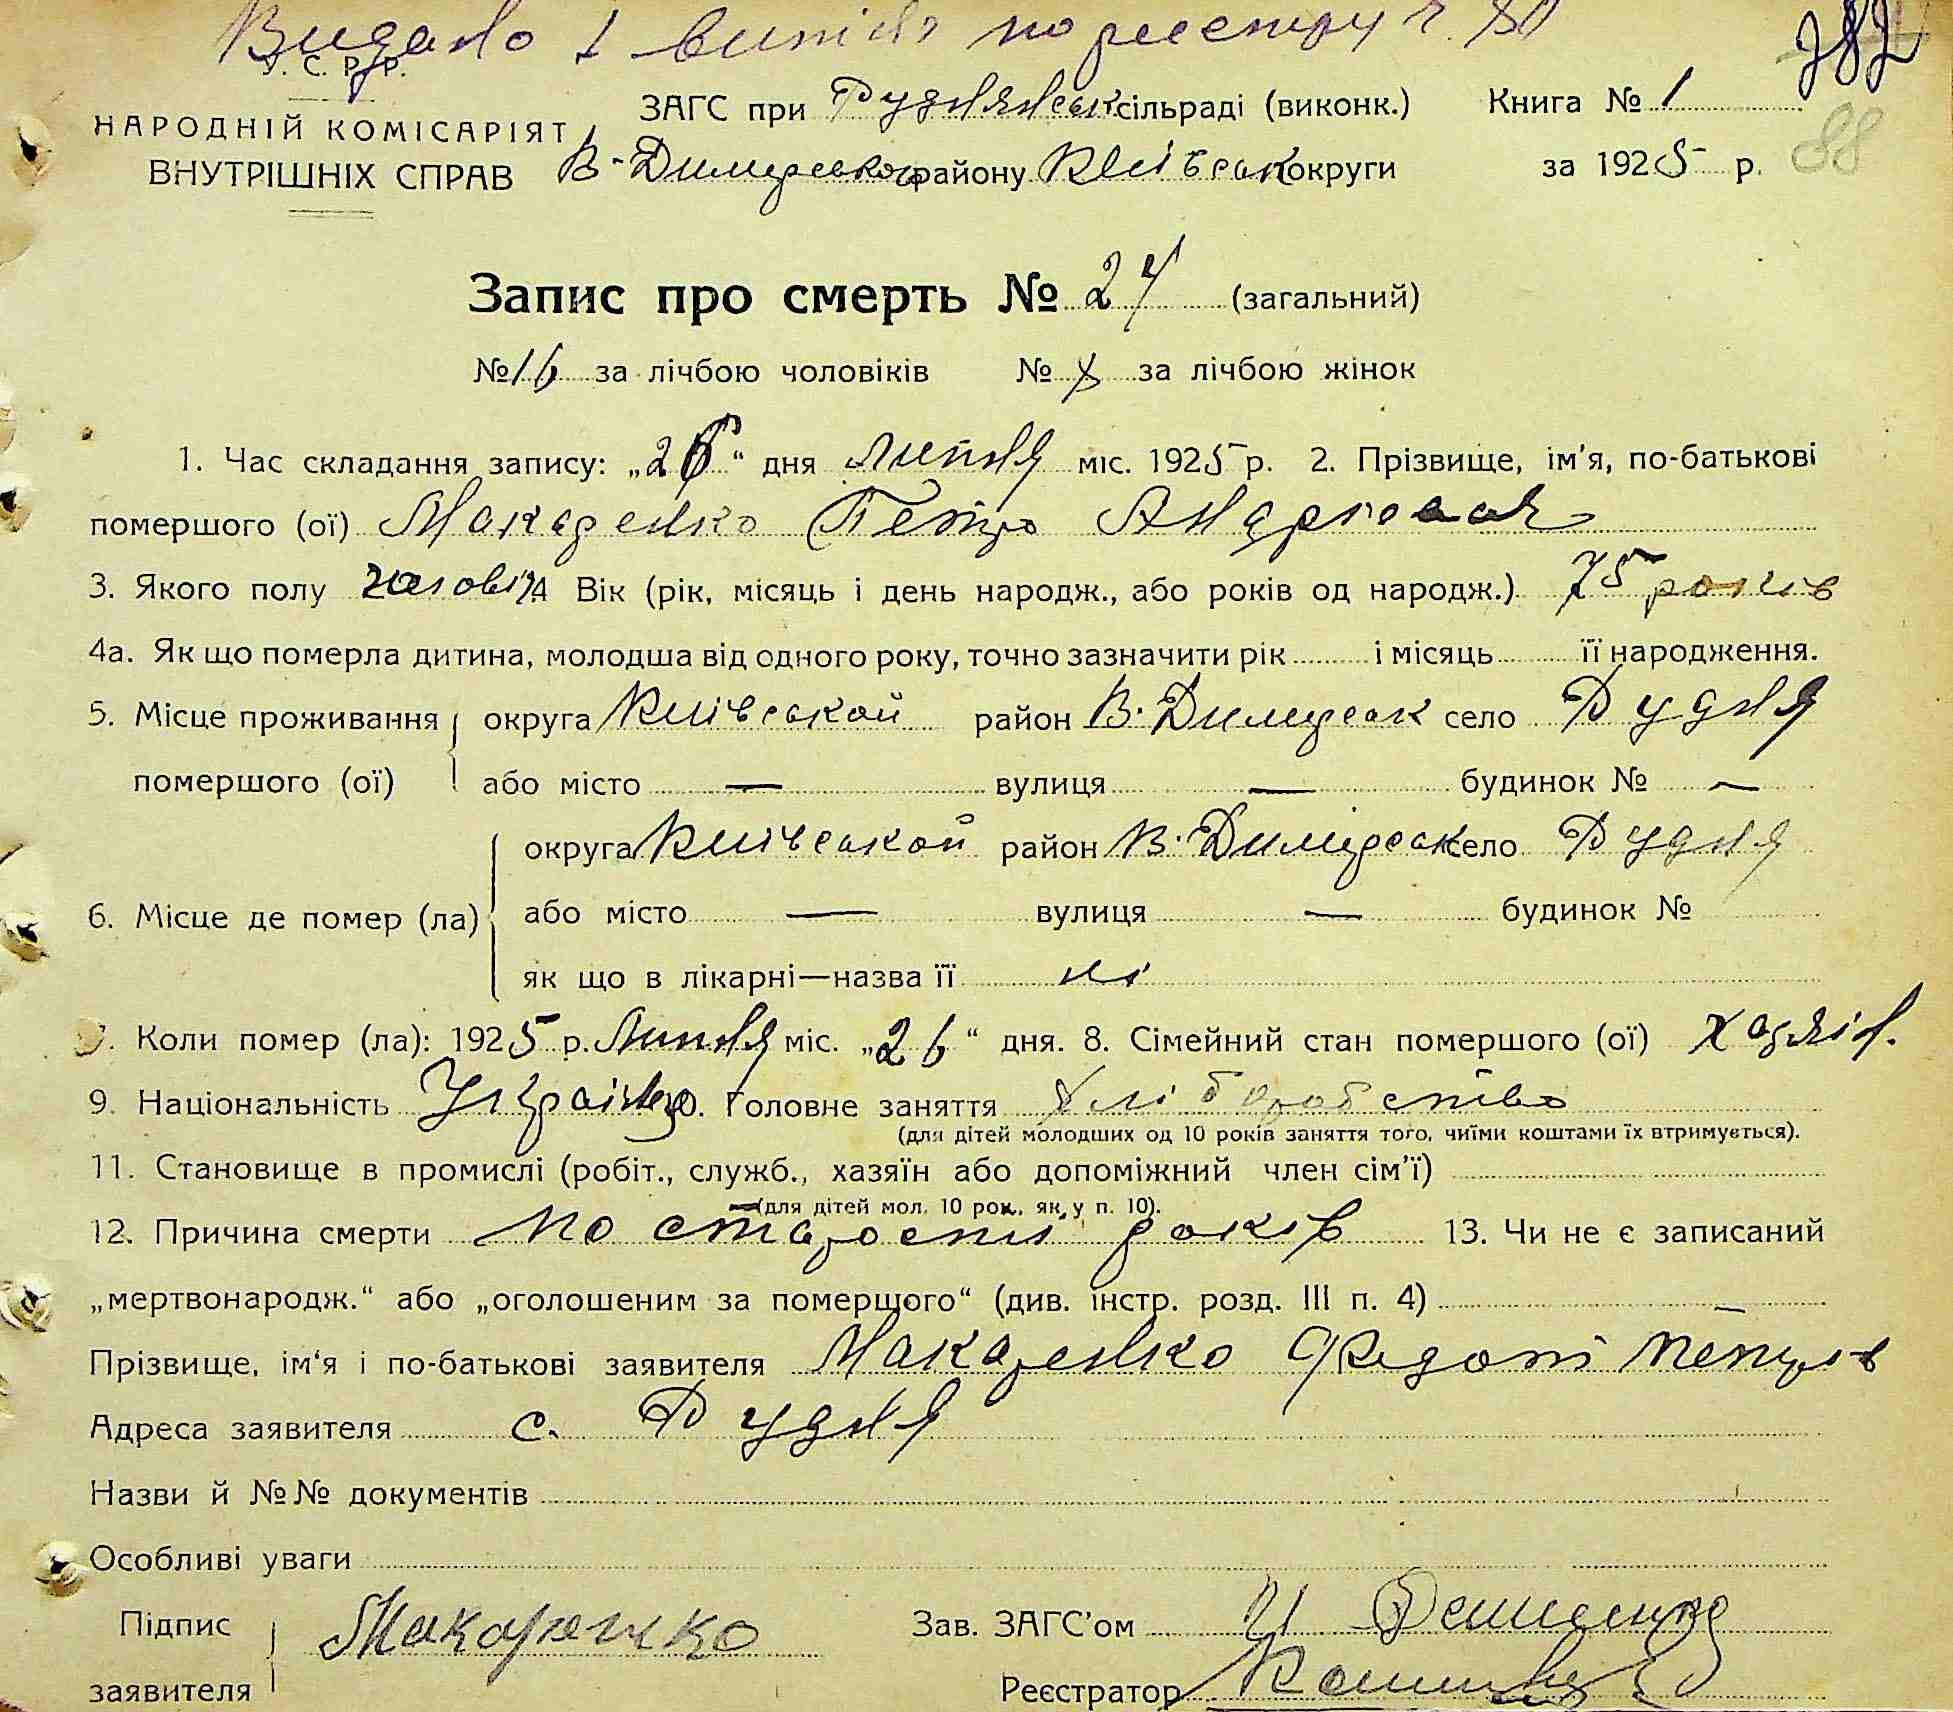 Видано 1 витяг по реєстру
У. С. Р. Р. 382
НАРОДНІЙ КОМІСАРІЯТ ЗАГС при Руднянськ сільраді (виконк.) Книга № 1 88
ВНУТРІШНІХ СПРАВ В-Димерського району Київськ округи за 1925 р.
Запис про смерть № 24 (загальний)
№ 16 за лічбою чоловіків № за лічбою жінок
1. Час складання запису: „26“ дня липня міс. 1925 р. 2. Прізвище, ім'я, по-батькові
помершого (ої) Макаренко Петро
3. Якого полу чоловік 4 Вік (рік, місяць і день народж., або років од народж.) 75 років
4а. Як що померла дитина, молодша від одного року, точно зазначити рік і місяць її народження.
5. Місце проживання округа Київской район В. Димерськ село Рудня
помершого (ої) або місто — вулиця — будинок № —
округа Київской район В. Димерськ село Рудня
6. Місце де помер (ла) або місто — вулиця — будинок №
як що в лікарні—назва її ні
7. Коли помер (ла): 1925 р. Липня міс. „26“ дня. 8. Сімейний стан помершого (ої) хазяін.
9. Національність Українець 10. Головне заняття хліборобство
(для дітей молодших од 10 років заняття того, чиїми коштами їх втримується).
11. Становище в промислі (робіт., служб., хазяїн або допоміжний член сім'ї)
(для дітей мол. 10 рок., як у п. 10).
12. Причина смерти по старости років 13. Чи не є записаний
„мертвонародж.“ або „оголошеним за помершого“ (див. інстр. розд. III п. 4) —
Прізвище, ім'я і по-батькові заявителя Макаренко Федот Петров
Адреса заявителя с. Рудня
Назви й №№ документів
Особливі уваги
Підпис Макаренко Зав. ЗАГС'ом
заявителя Реєстратор